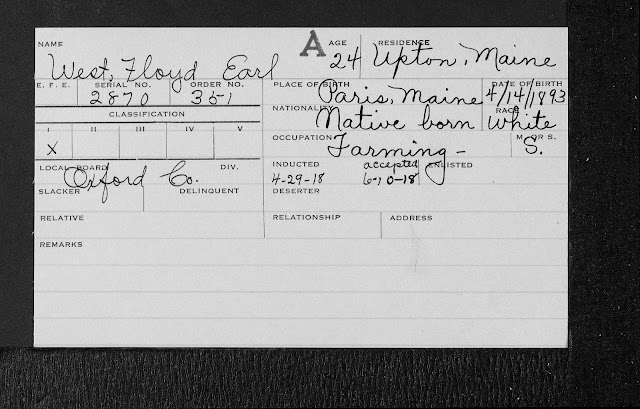 NAME A AGE RESIDENCE
West, Floyd Earl 24 Upton, Maine
E. F. E. SERIAL NO. ORDER NO. PLACE OF BIRTH DATE OF BIRTH
2870 351 Paris, Maine 4/14/1893
CLASSIFICATION NATIONALITY RACE
I II III IV V Native born White
X OCCUPATION Farming - M OR S. S.
LOCAL BOARD DIV. INDUCTED accepted ENLISTED
Oxford Co. 4-29-18 6-10-18
SLACKER DELINQUENT DESERTER
RELATIVE RELATIONSHIP ADDRESS
REMARKS